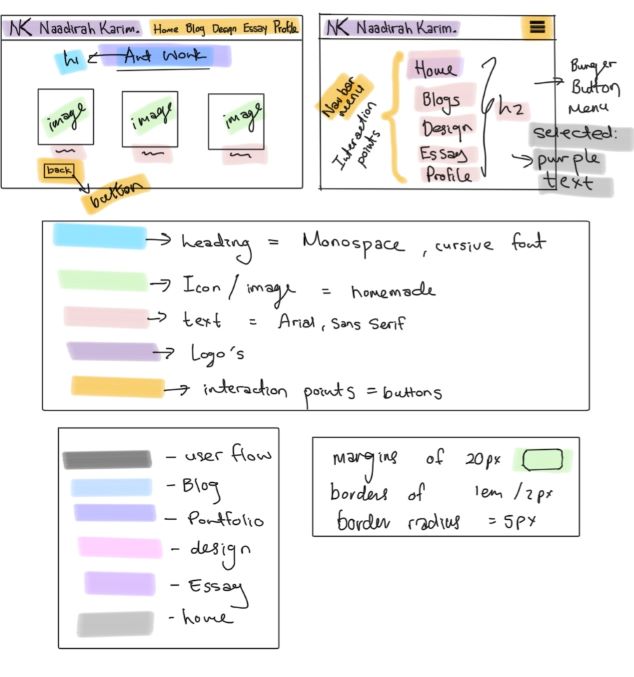 NK Naadirah Karim.
Home Blog Design Essay Profile
h1
Art Work
image
image
image
back
button
NK Naadirah Karim.
Navbar
menu
Interaction
points
Home
Blogs
Design
Essay
Profile
h2
Burger
Button
Menu
selected:
purple
text
heading = Monospace, cursive font
Icon / image = homemade
text = Arial, Sans Serif
Logo's
interaction points = buttons
- user flow
- Blog
- Portfolio
- design
- Essay
- home
margins of 20px
borders of 1em / 2px
border radius = 5px